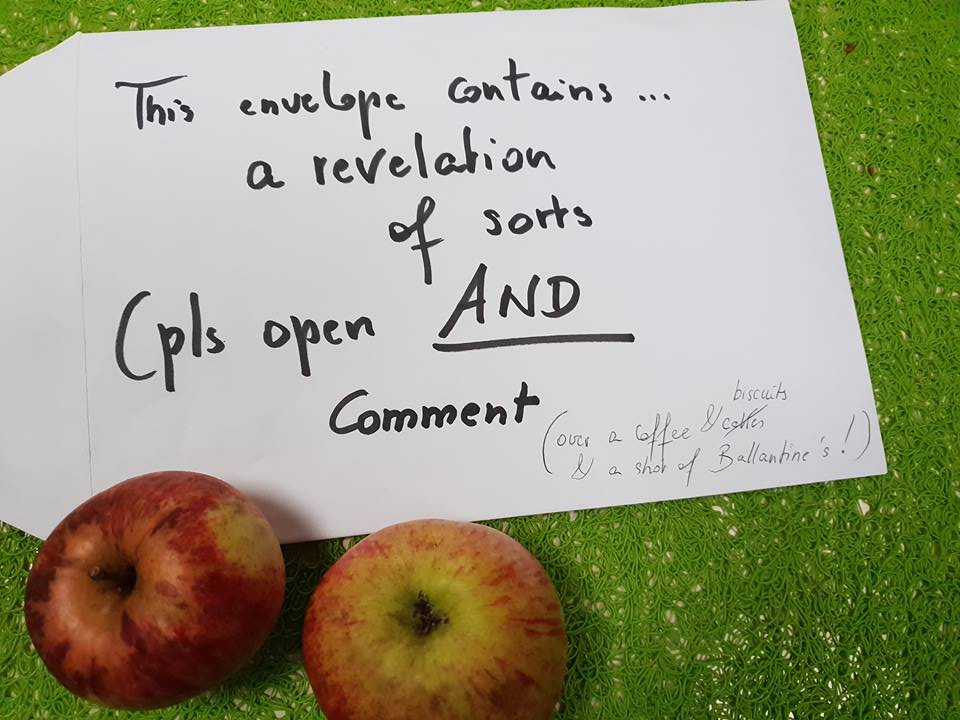 This envelope contains...
a revelation
of sorts
(pls open AND
Comment
biscuits
(over a coffee &
& a shot of Ballantine's!)